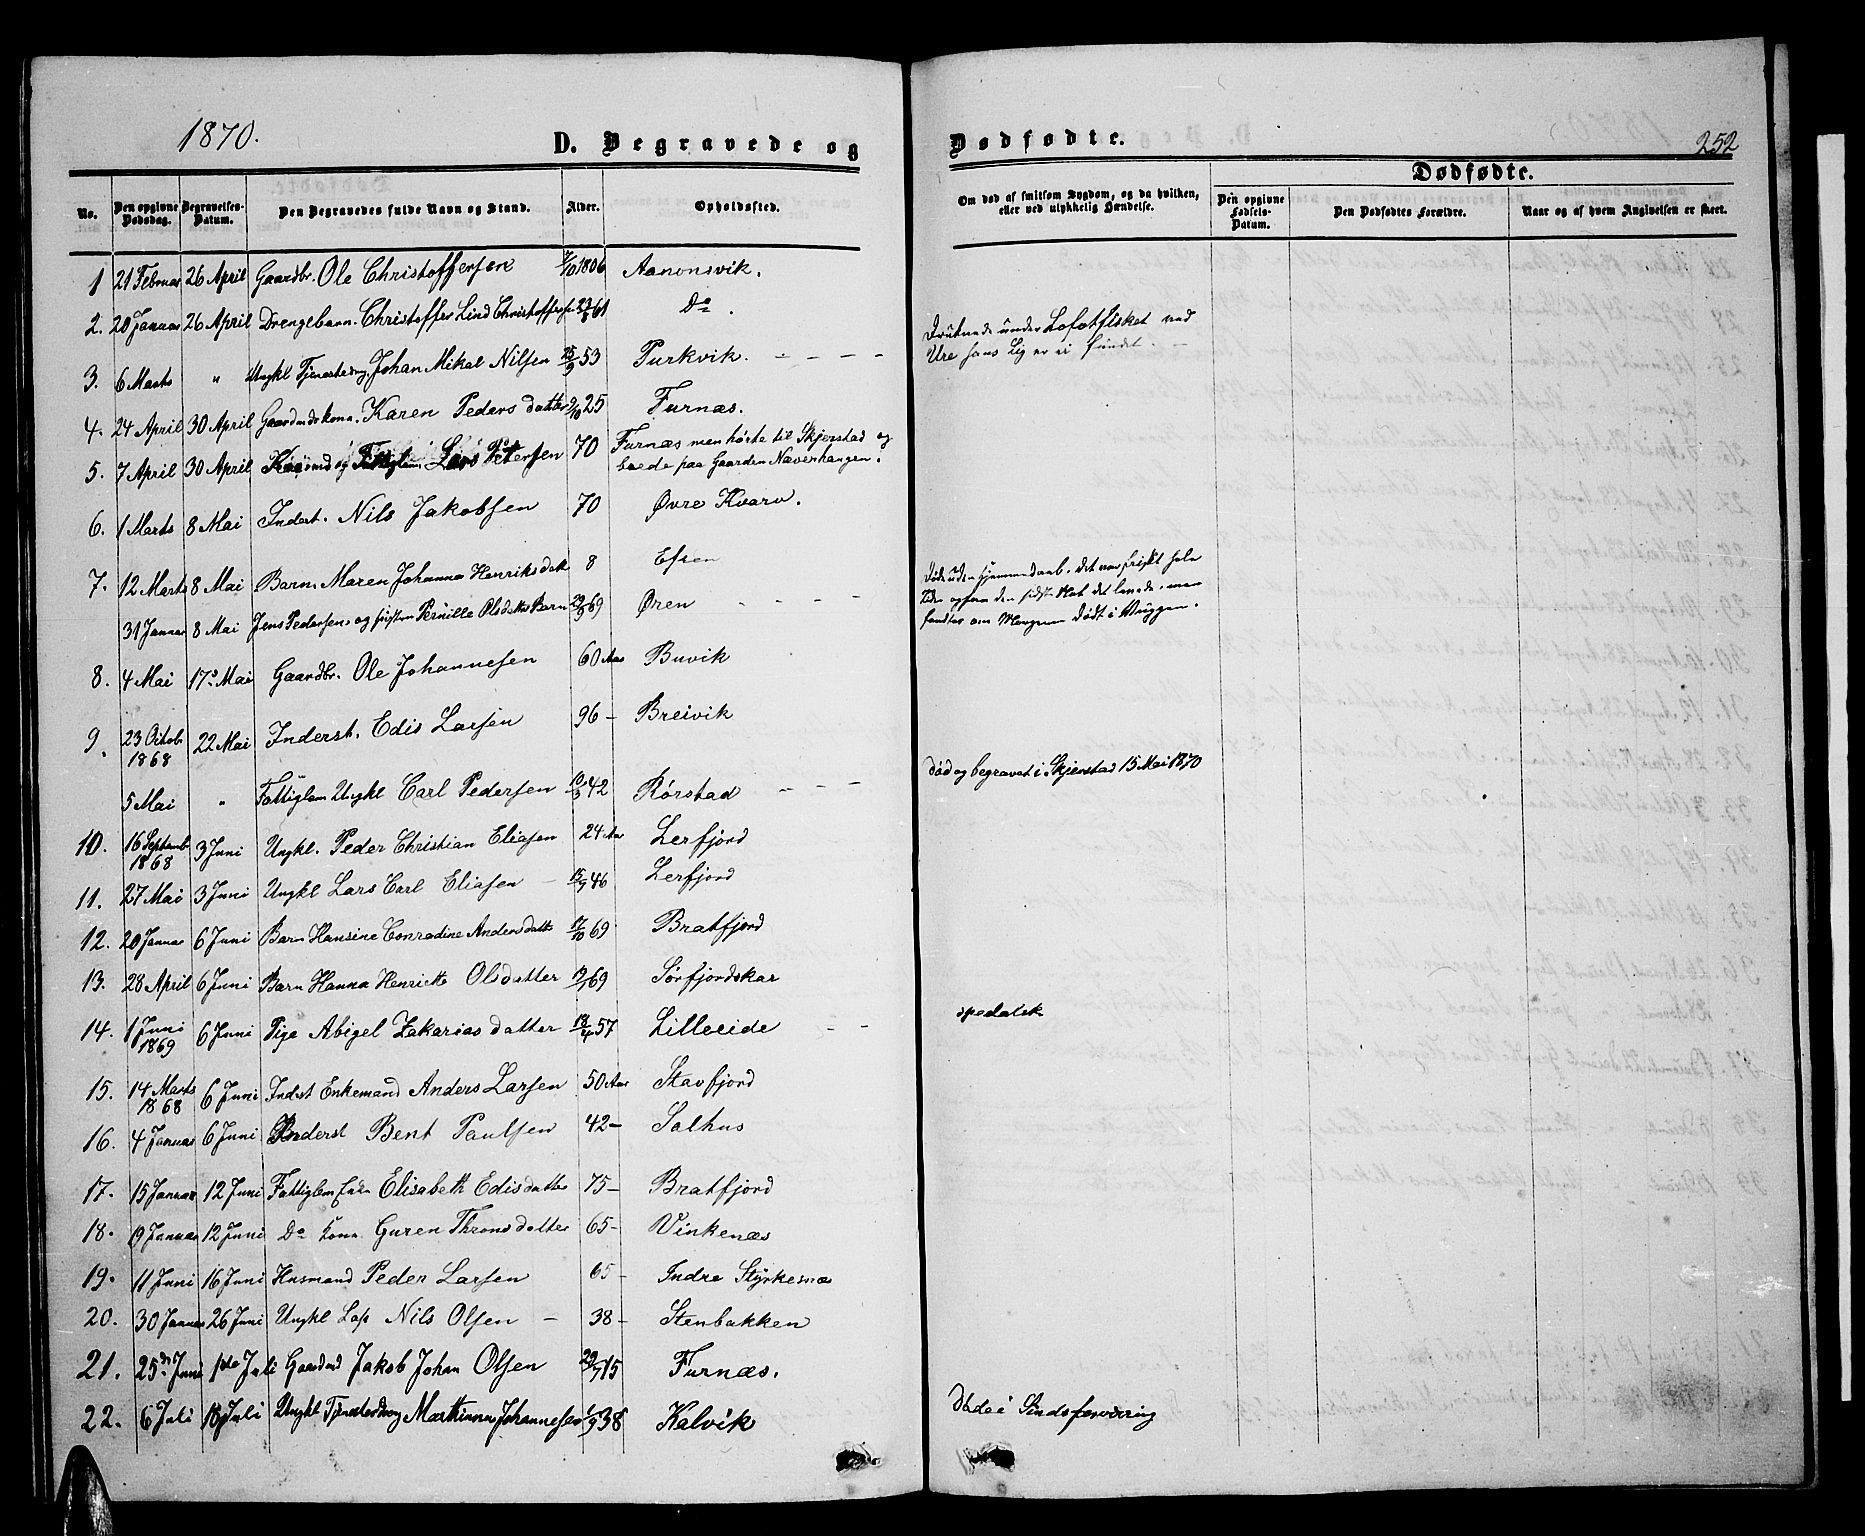 1870.
D. Begravede og
Dødfødte.
252
No.
Den opgivne Dødsdag.
Begravelses-Datum.
Den Begravedes fulde Navn og Stand.
Alder.
Opholdssted.
Om død af smitsom Sygdom, og da hvilken,
eller ved ulykkelig Hændelse.
Dødfødte.
Den opgivne Fødsels-Datum.
Den Dødfødtes Forældre.
Naar og af hvem Angivelsen er skeet.
1 21 Februar 26 April Gaardbr. Ole Christoffersen 7/10 1806 Aanonsvik.
2. 20 Januar 26 April Drengebarn. Christoffer Lind Christoffersen 61 Do.
3. 6 Marts " Ungkl Tjenestedrg. Johan Mikal Nilsen 25/9 53 Purkvik. - - - -
Druknede under Lofotfisket ved
Ure hans Lig er ei fundet. -
4. 24 April 30 April Gaardmdskona. Karen Pedersdatter 25 Furnæs.
5. 7 April 30 April og Fattiglem. Lars Petersen 70 Furnæs men hørte til Skjerstad og
boede paa Gaarden Næverhaugen.
6. 1 Marts 8 Mai Inderst. Nils Jakobsen 70 Øvre Kvarv.
7. 12 Marts 8 Mai Barn. Maren Johanna Henriksdatt 8 Efjen
31 Januar 8 Mai Jens Pedersen og hustru Pernille Olsdatters Barn 69 Øren - - - -
Døde uden hjemmedaab. det var friskt hele
Tiden ogsaa den sidste Nat det levede. men
fandtes om Morgenen dødt i Vuggen.
8. 4 Mai 17 Mai Gaardbr. Ole Johannesen 60 Aar Buvik
9. 23 Octob. 1868 22 Mai Inderst. Edis Larsen 96 - Breivik
5 Mai " Fattiglem Ungkl Carl Pedersen 42 Rørstad - - -
død og begravet i Skjerstad 15 Mai 1870
10. 16 Septemb 1868 3 Juni Ungkl. Peder Christian Eliasen 24 Aar Lerfjord
11. 27 Mai 3 Juni Ungkl Lars Carl Eliasen - 46 Lerfjord
12. 20 Januar 6 Juni Barn Hansine Conradine Andersdatt 17/10 69 Bratfjord
13. 28 April 6 Juni Barn Hanna Henriette Olsdatter 69 Sørfjordskar
14. 1 Juni 1869 6 Juni Pige Abigel Zakariasdatter 18/4 57 Lilleeide - -
spedalsk
15. 14 Marts 1868 6 Juni Inderst Enkemand Anders Larsen 50 Aar Stavfjord
16. 4 Januar 6 Juni Inderst Bent Paulsen 42 - Salhus
17. 15 Januar 12 Juni Fattiglem Enke Elisabeth Edisdatter 75 - Bratfjord
18. 19 Januar 12 Juni Do kona Guren Thronsdatter 65 - Vinkenæs
19. 11 Juni 16 Juni Husmand Peder Larsen 65 - Indre Styrkesnæs
20. 30 Januar 26 Juni Ungkl Lap Nils Olsen - 38 - Stenbakken
21. 25de Juni 1ste Juli Gaardmd Jakob Johan Olsen 15 Furnæs.
22. 6 Juli 18 Juli Ungkl Tjenestedreng Martinus Johannesen 1/9 38 Kalvik
Døde i Sindsforvirring